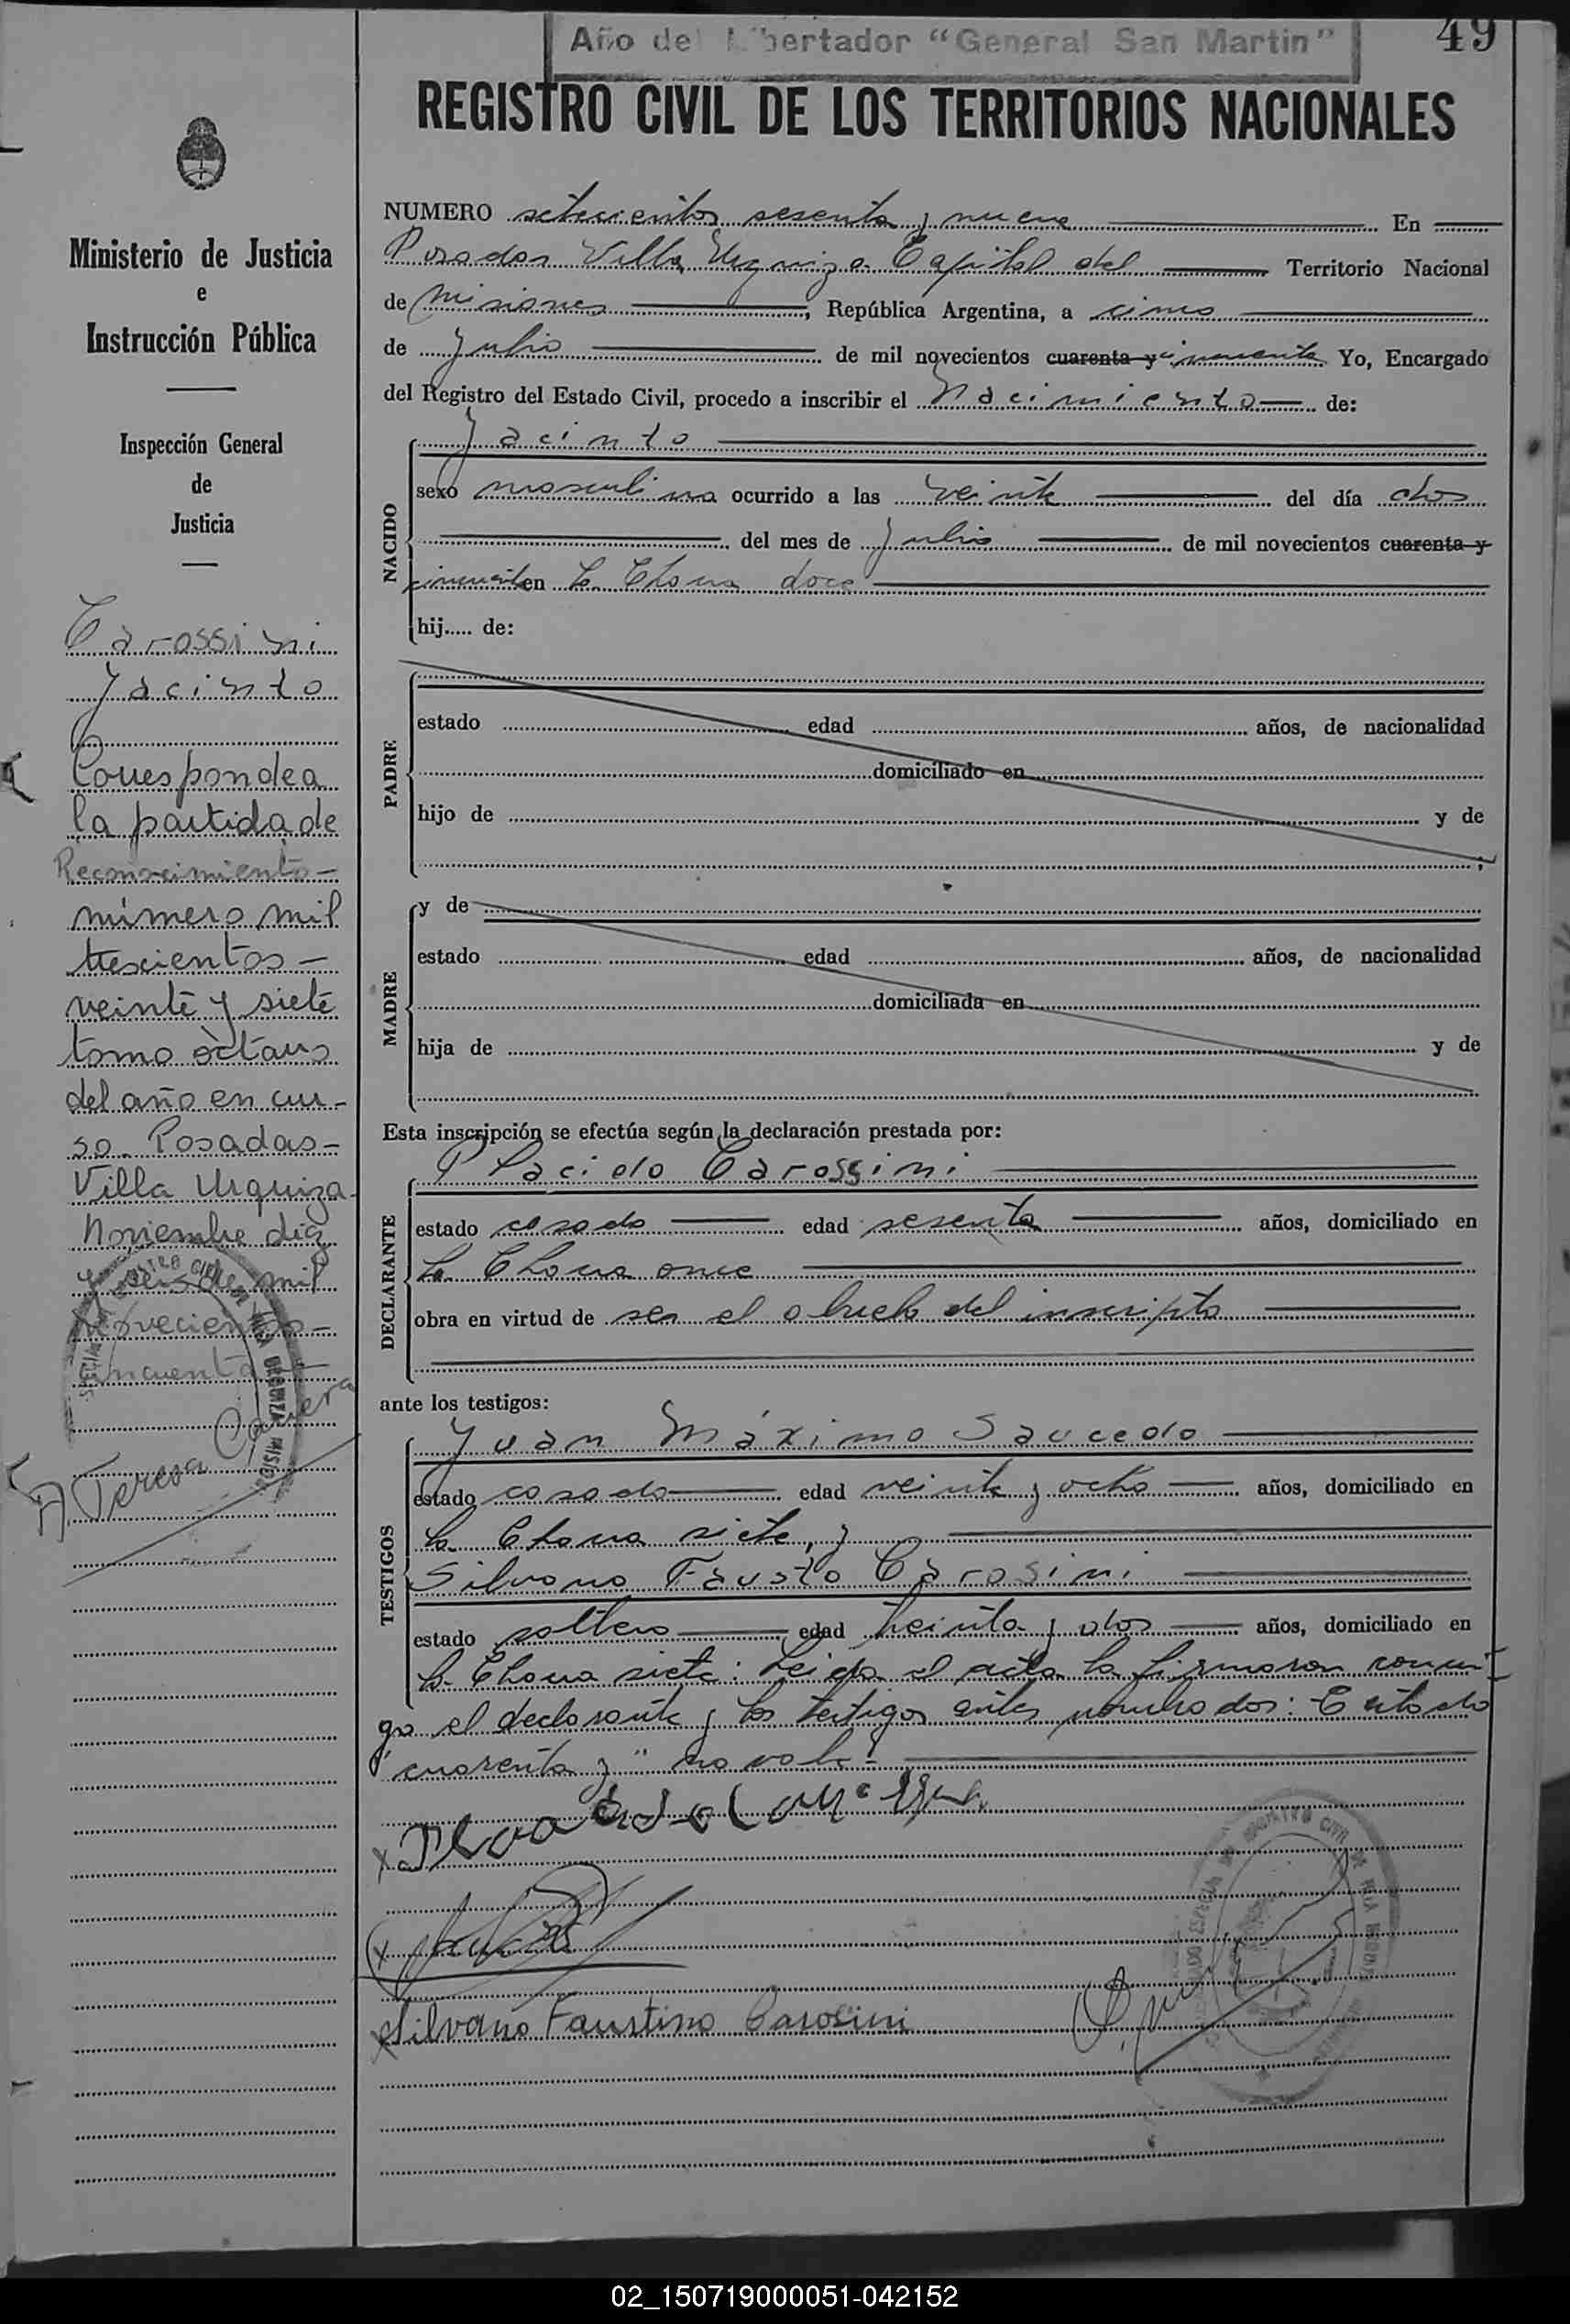 Año del Libertador "General San Martin"
49
REGISTRO CIVIL DE LOS TERRITORIOS NACIONALES
Ministerio de Justicia
e
Instrucción Pública
Inspección General
de
Justicia
Carossini
Jacinto
Corresponde a
la partida de
Reconocimiento –
número mil
trescientos –
veinte y siete
tomo octavo
del año en cur-
so. Posadas –
Villa Urquiza
Noviembre diez
y seis de mil
novecientos –
cincuenta
A. Teresa
NUMERO setecientos sesenta y nueve En
Posadas Villa Urquiza Capital del Territorio Nacional
de Misiones, República Argentina, a cinco
de Julio de mil novecientos cuarenta y cincuenta Yo, Encargado
del Registro del Estado Civil, procedo a inscribir el Nacimiento de:
NACIDO
Jacinto
sexo masculino ocurrido a las veinte del día dos
del mes de Julio de mil novecientos cuarenta y
cincuenta en La Chacra doce
hij..... de:
PADRE
estado edad años, de nacionalidad
domiciliado en
hijo de y de
;
MADRE
y de
estado edad años, de nacionalidad
domiciliada en
hija de y de
Esta inscripción se efectúa según la declaración prestada por:
DECLARANTE
Placido Carossini
estado casado edad sesenta años, domiciliado en
La Chacra once
obra en virtud de ser el abuelo del inscripto
ante los testigos:
TESTIGOS
Juan Máximo Saucedo
estado casado edad veinte y ocho años, domiciliado en
La Chacra siete, y
Silvano Fausto Carosini
estado soltero edad treinta y dos años, domiciliado en
la Chacra siete: Leida el acta la firmaron conmi-
go el declarante y los testigos antes nombrados: Testado
"cuarenta y" no vale.-
Silvano Faustino Carosini
02_150719000051-042152